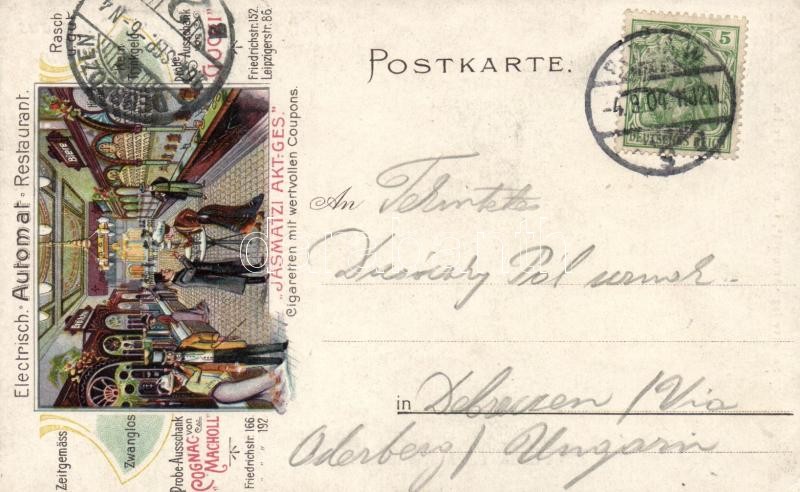 POSTKARTE.
5
DEUTSCHES REICH
-4.9.04.11-12N
SEP. 6 N4
Electrisch. Automat-Restaurant.
Rasch
Kein
Trinkgeld
Probe-Ausschank
Friedrichstr. 152.
Leipzigerstr. 86.
Biere
"JASMATZI AKT.-GES."
Cigaretten mit wertvollen Coupons.
Zeitgemäss
Zwanglos
Probe-Ausschank
COGNAC von
"MACHOLL"
Friedrichstr. 166.
" " 192.
An Tekintetes
Pol urnak.
in Debreczen / Via
Oderberg / Ungarn